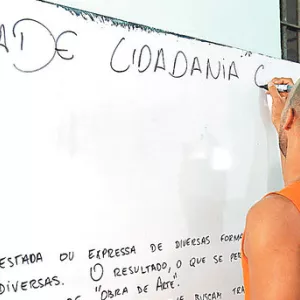 ADE CIDADANIA" C
ESTADA OU EXPRESSA DE DIVERSAS FORMA
DIVERSAS. O RESULTADO, O QUE SE PE
"OBRA DE ARTE".
BUSCAM